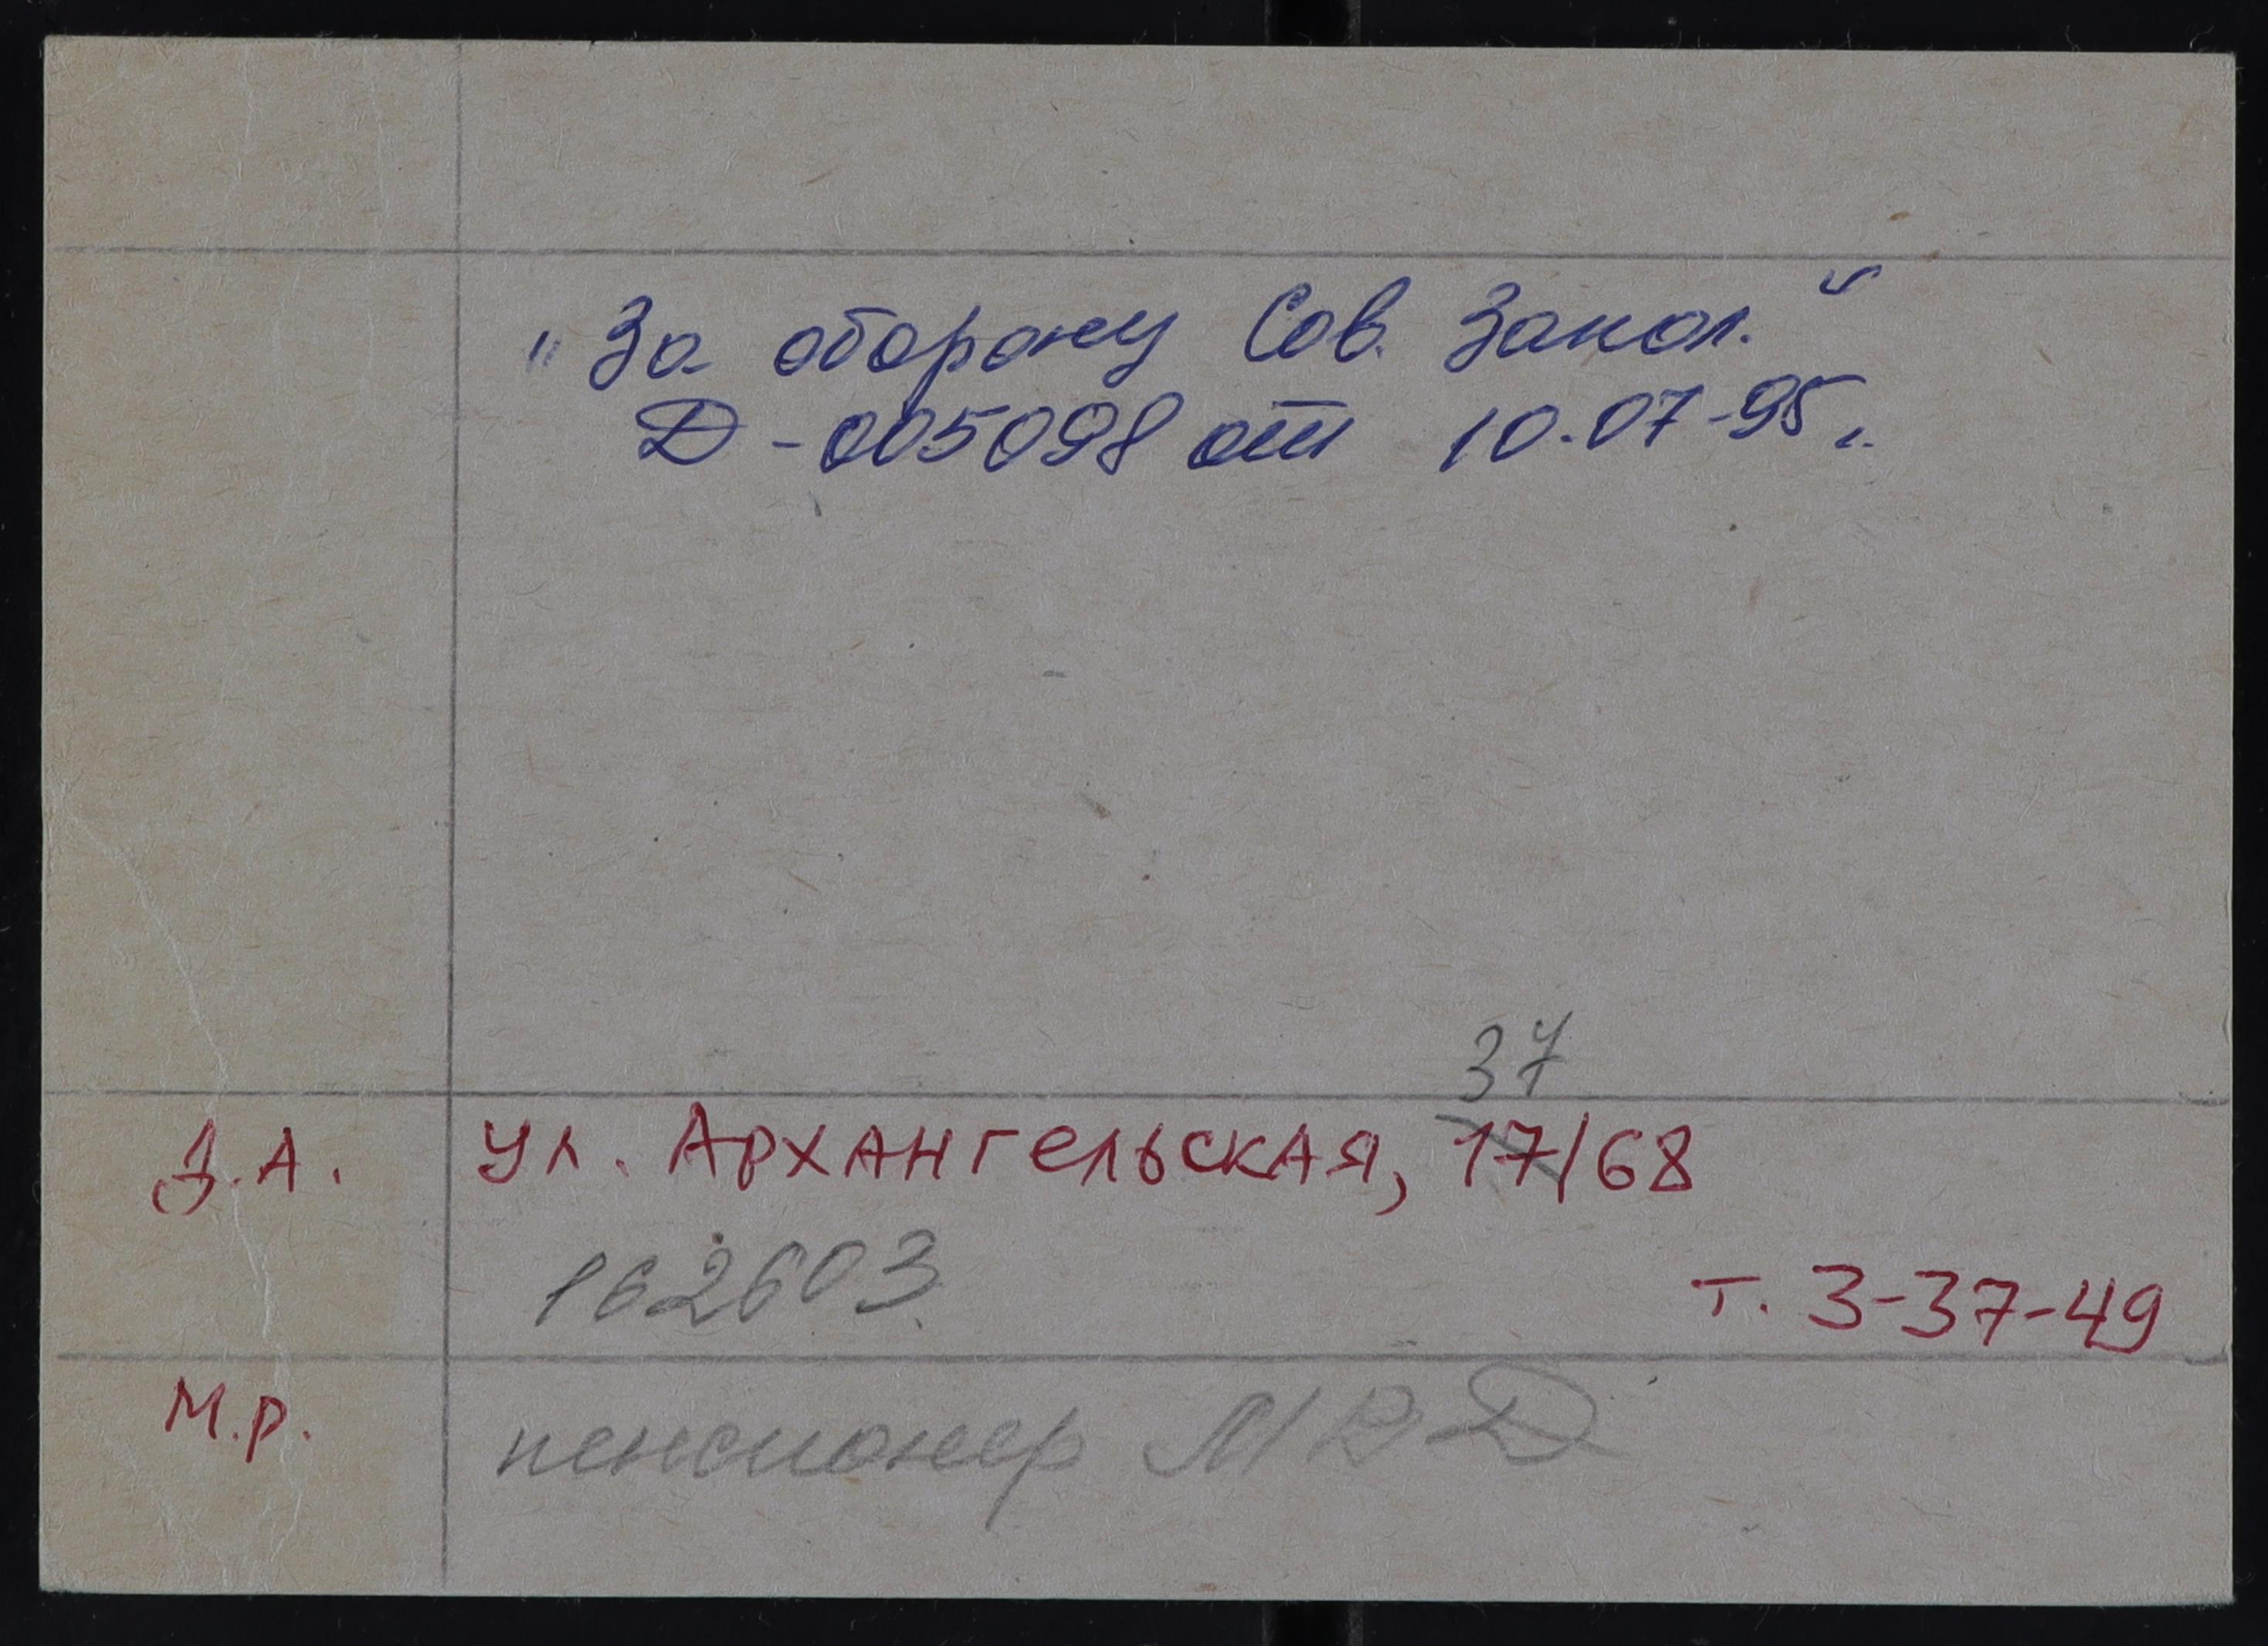 "За оборону Сов. Запол."
Д-005098 от 10.07-95 г.
37
Д.А. ул. Архангельская, 17/68
162603
т. 3-37-49
М.р. пенсионер МВД